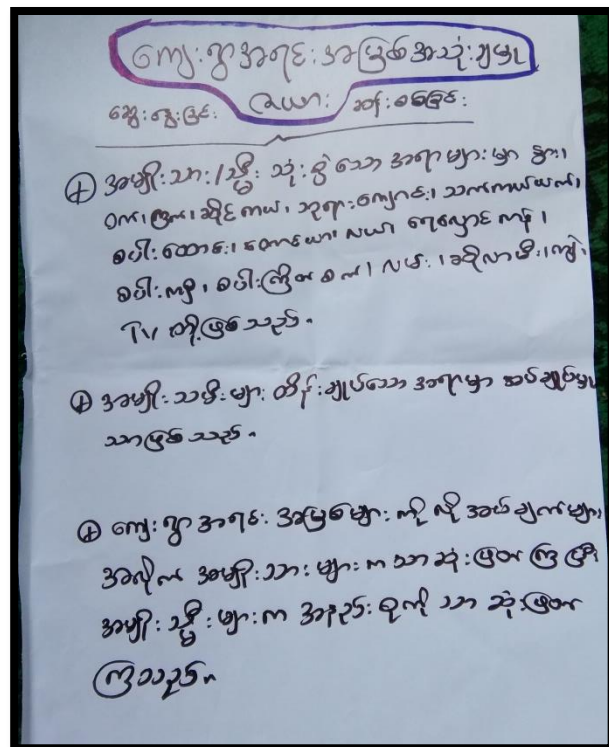 ကျေးရွာအရင်းအမြစ်အသုံးချမှု
ဆွေးနွေးခြင်း ဇယား ဆန်းစစ်ခြင်း
⊕ အမျိုးသား/သ္မီး သုံးစွဲသော အရာများမှာ နွား၊
ဝက်၊ ကြက်၊ ဆိုင်ကယ်၊ ဘုရားကျောင်း၊ သက်ကယ်ယက်၊
စပါး ထောင်း၊ တောင်ယာ၊ လယာ ရေလှောင်ကန်၊
စပါး ကျီ၊ စပါးကြိတ် စက်၊ လမ်း၊ ဆိုလာမီး၊ ကျွဲ၊
TV တို့ဖြစ်သည်။
⊕ အမျိုးသမီးများ ထိန်းချုပ်သော အရာမှာ အပ်ချုပ်မှု
သာဖြစ်သည်။
⊕ ကျေးရွာအရင်း အမြစ်များ ကို လို အပ်ချက်များ
အလိုက် အမျိုးသား များ က သာ ဆုံးဖြတ် ကြ ပြီး
အမျိုး သ္မီး များ က အနည်း စုကို သာ ဆုံးဖြတ်
ကြသည်။